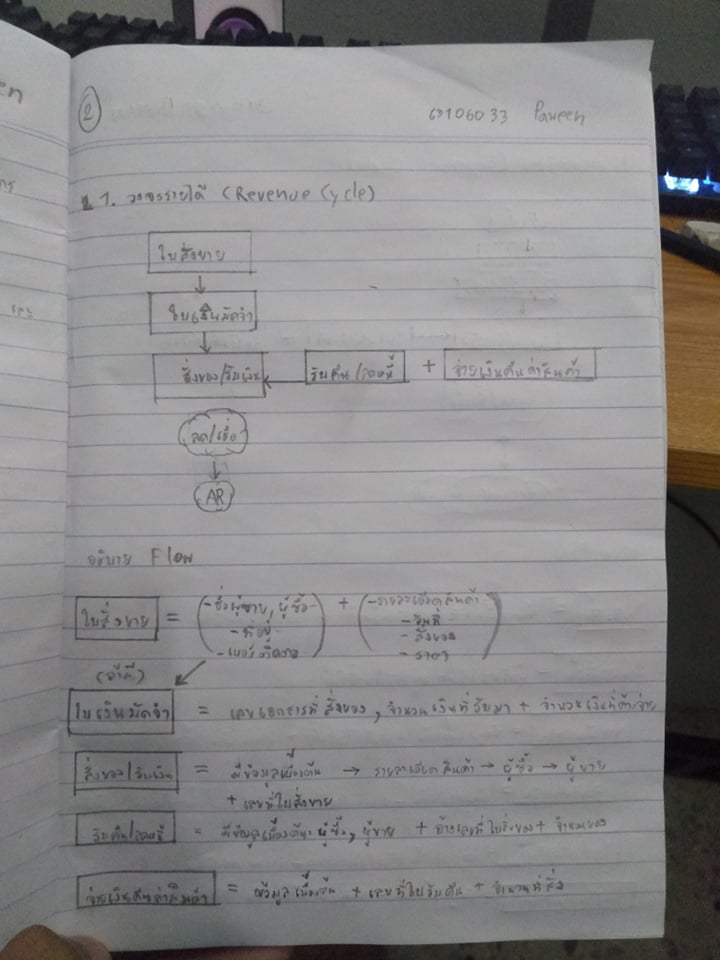 2
63106033 Paween
1. วงจรรายได้ (Revenue Cycle)
ใบสั่งขาย
ใบเงินมัดจำ
สั่งของ/รับเงิน
รับคืน/ลดหนี้ + จ่ายเงินคืนค่าสินค้า
ลด/เชื่อ
AR
อธิบาย Flow
ใบสั่งขาย = - ชื่อผู้ขาย, ผู้ซื้อ + - รายละเอียดสินค้า
- ที่อยู่ - วันที่
- เบอร์ติดต่อ - สิ่งของ
- ราคา
(ถ้ามี)
ใบเงินมัดจำ = เลขเอกสารที่สั่งของ, จำนวนเงินที่รับมา + จำนวนเงินที่ค้างจ่าย
สั่งของ/รับเงิน = มีข้อมูลเบื้องต้น → รายละเอียดสินค้า → ผู้ซื้อ → ผู้ขาย
+ เลขที่ใบสั่งขาย
รับคืน/ลดหนี้ = มีข้อมูลเบื้องต้น ผู้ซื้อ, ผู้ขาย + อ้างเลขที่ใบสั่งของ + จำนวนของ
จ่ายเงินคืนค่าสินค้า = ข้อมูลเบื้องต้น + เลขที่ใบรับคืน + จำนวนที่สั่ง